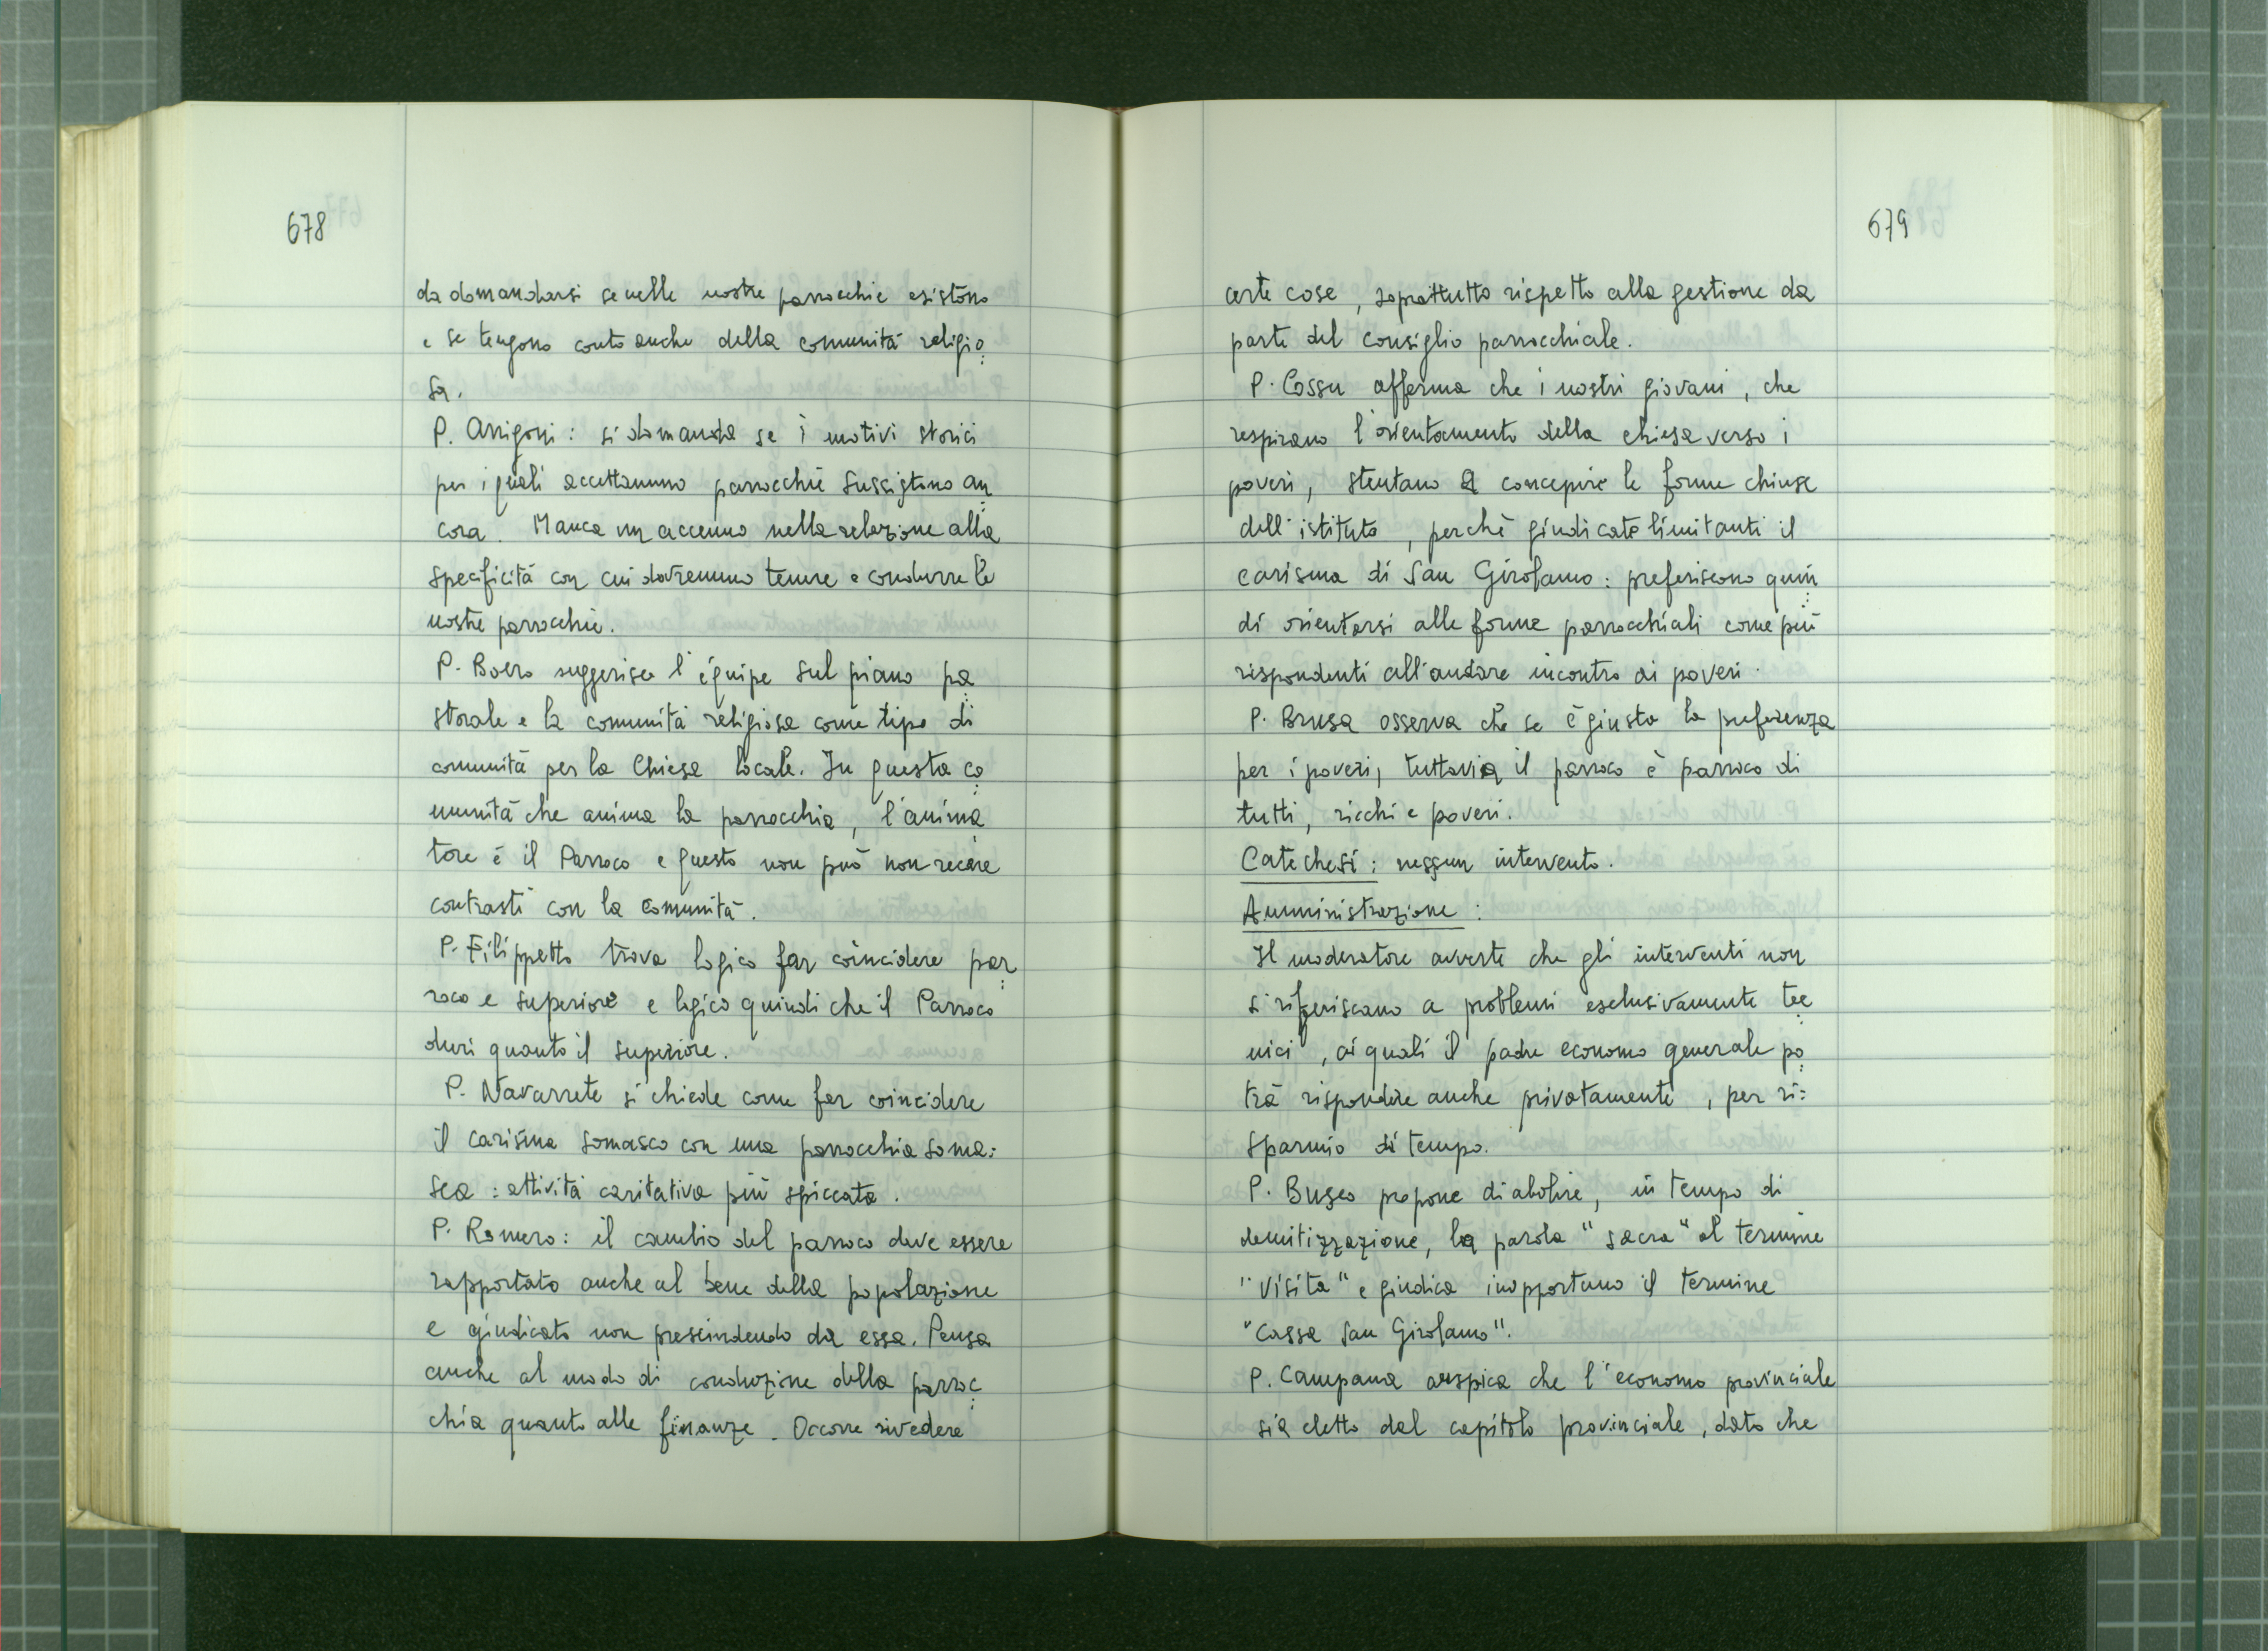 678
da domandarsi se nelle nostre parrocchie esistono
e se tengono conto anche della comunità religio
sa.
P. Arrigoni: si domanda se i motivi storici
per i quali accettammo parrocchie sussistono an
cora. Manca un accenno nella relazione alla
specificità con cui dovremmo tenere e condurre le
nostre parrocchie.
P. Boero suggerisce l'équipe sul piano pa
storale e la comunità religiosa come tipo di
comunità per la Chiesa locale. In questa co
munità che anima la parrocchia, l'anima
tore è il Parroco e questo non può non recare
contrasti con la comunità.
P. Filippetto trova logico far coincidere par
roco e superiore e logico quindi che il Parroco
duri quanto il superiore.
P. Navarrete si chiede come far coincidere
il carisma somasco con una parrocchia soma=
sca: attività caritativa più spiccata.
P. Romero: il cambio del parroco deve essere
rapportato anche al bene della popolazione
e giudicato non prescindendo da essa. Pensa
anche al modo di conduzione della parroc
chia quanto alle finanze. Occorre rivedere
679
certe cose, soprattutto rispetto alla gestione da
parte del consiglio parrocchiale.
P. Cossu afferma che i nostri giovani, che
respirano l'orientamento della chiesa verso i
poveri, stentano a concepire le forme chiuse
dell'istituto, perchè giudicate limitanti il
carisma di San Girolamo: preferiscono quin
di orientarsi alle forme parrocchiali come più
rispondenti all'andare incontro ai poveri.
P. Brusa osserva che se è giusta la preferenza
per i poveri, tuttavia il parroco è parroco di
tutti, ricchi e poveri.
Catechesi: nessun intervento.
Amministrazione:
Il moderatore avverte che gli interventi non
si riferiscano a problemi esclusivamente tec
nici, ai quali il padre economo generale po
trà rispondere anche privatamente, per ri=
sparmio di tempo.
P. Busco propone di abolire, in tempo di
demitizzazione, la parola "sacra" al termine
"visita" e giudica inopportuno il termine
"Cassa San Girolamo".
P. Campana auspica che l'economo provinciale
sia eletto dal capitolo provinciale, dato che